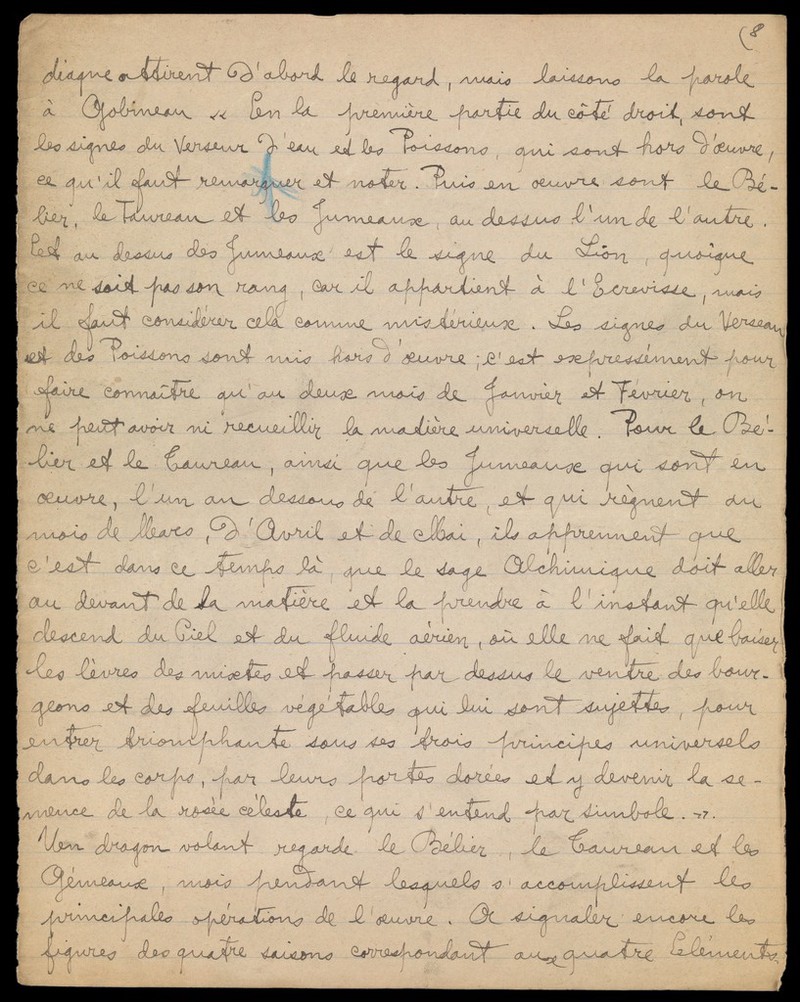 (8
diaque attirent d'abord le regard, mais laissons la parole
à Gobineau « En la première partie du côté droit, sont
les signes du Verseur d'eau et les Poissons, qui sont hors d'œuvre,
ce qu'il faut remarquer et noter. Puis en œuvre sont le Bé-
lier, le Taureau et les Jumeaux, au dessus l'un de l'autre.
Et au dessus des Jumeaux est le signe du Lion, quoique
ce ne soit pas son rang, car il appartient à l'Ecrevisse, mais
il faut considérer cela comme mistérieux. Les signes du Verseau
et des Poissons sont mis hors d'œuvre ; c'est expressément pour
faire connaître qu'au deux mois de Janvier et Février, on
ne peut avoir ni recueillir la matière universelle. Pour le Bé-
lier et le Taureau, ainsi que les Jumeaux qui sont en
œuvre, l'un au dessous de l'autre, et qui règnent au
mois de Mars, d'Avril et de Mai, ils apprennent que
c'est dans ce temps là, que le sage Alchimique doit aller
au devant de la matière et la prendre à l'instant qu'elle
descend du Ciel et du fluide aérien, où elle ne fait que baiser
les lèvres des mixtes et passer par dessus le ventre des bour-
geons et des feuilles végétables qui lui sont sujettes, pour
entrer triomphante sous ses trois principes universels
dans les corps, par leurs portes dorées et y devenir la se-
mence de la rosée céleste, ce qui s'entend par simbole. ».
Un dragon volant regarde le Bélier, le Taureau et les
Gémeaux, mois pendant lesquels s'accomplissent les
principales opérations de l'œuvre. A signaler encore les
figures des quatre saisons correspondant aux quatre Eléments.